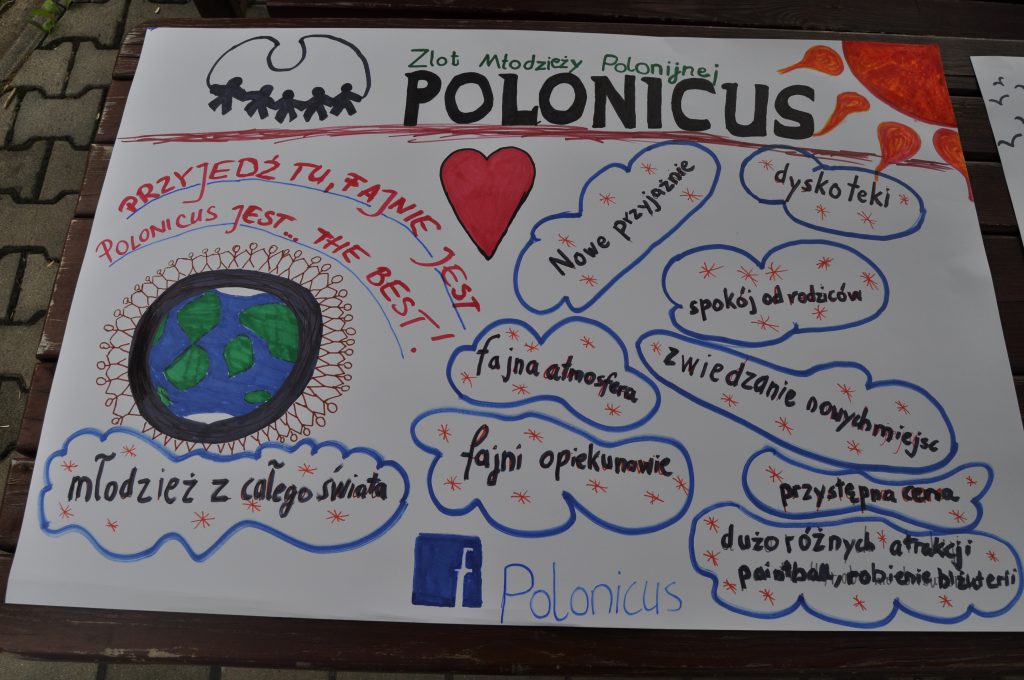 Zlot Młodzieży Polonijnej
POLONICUS
PRZYJEDŹ TU, FAJNIE JEST
POLONICUS JEST... THE BEST!
Nowe przyjaźnie
dyskoteki
spokój od rodziców
fajna atmosfera
zwiedzanie nowych miejsc
fajni opiekunowie
młodzież z całego świata
przystępna cena
dużo różnych atrakcji
paintball, robienie biżuterii
f
Polonicus